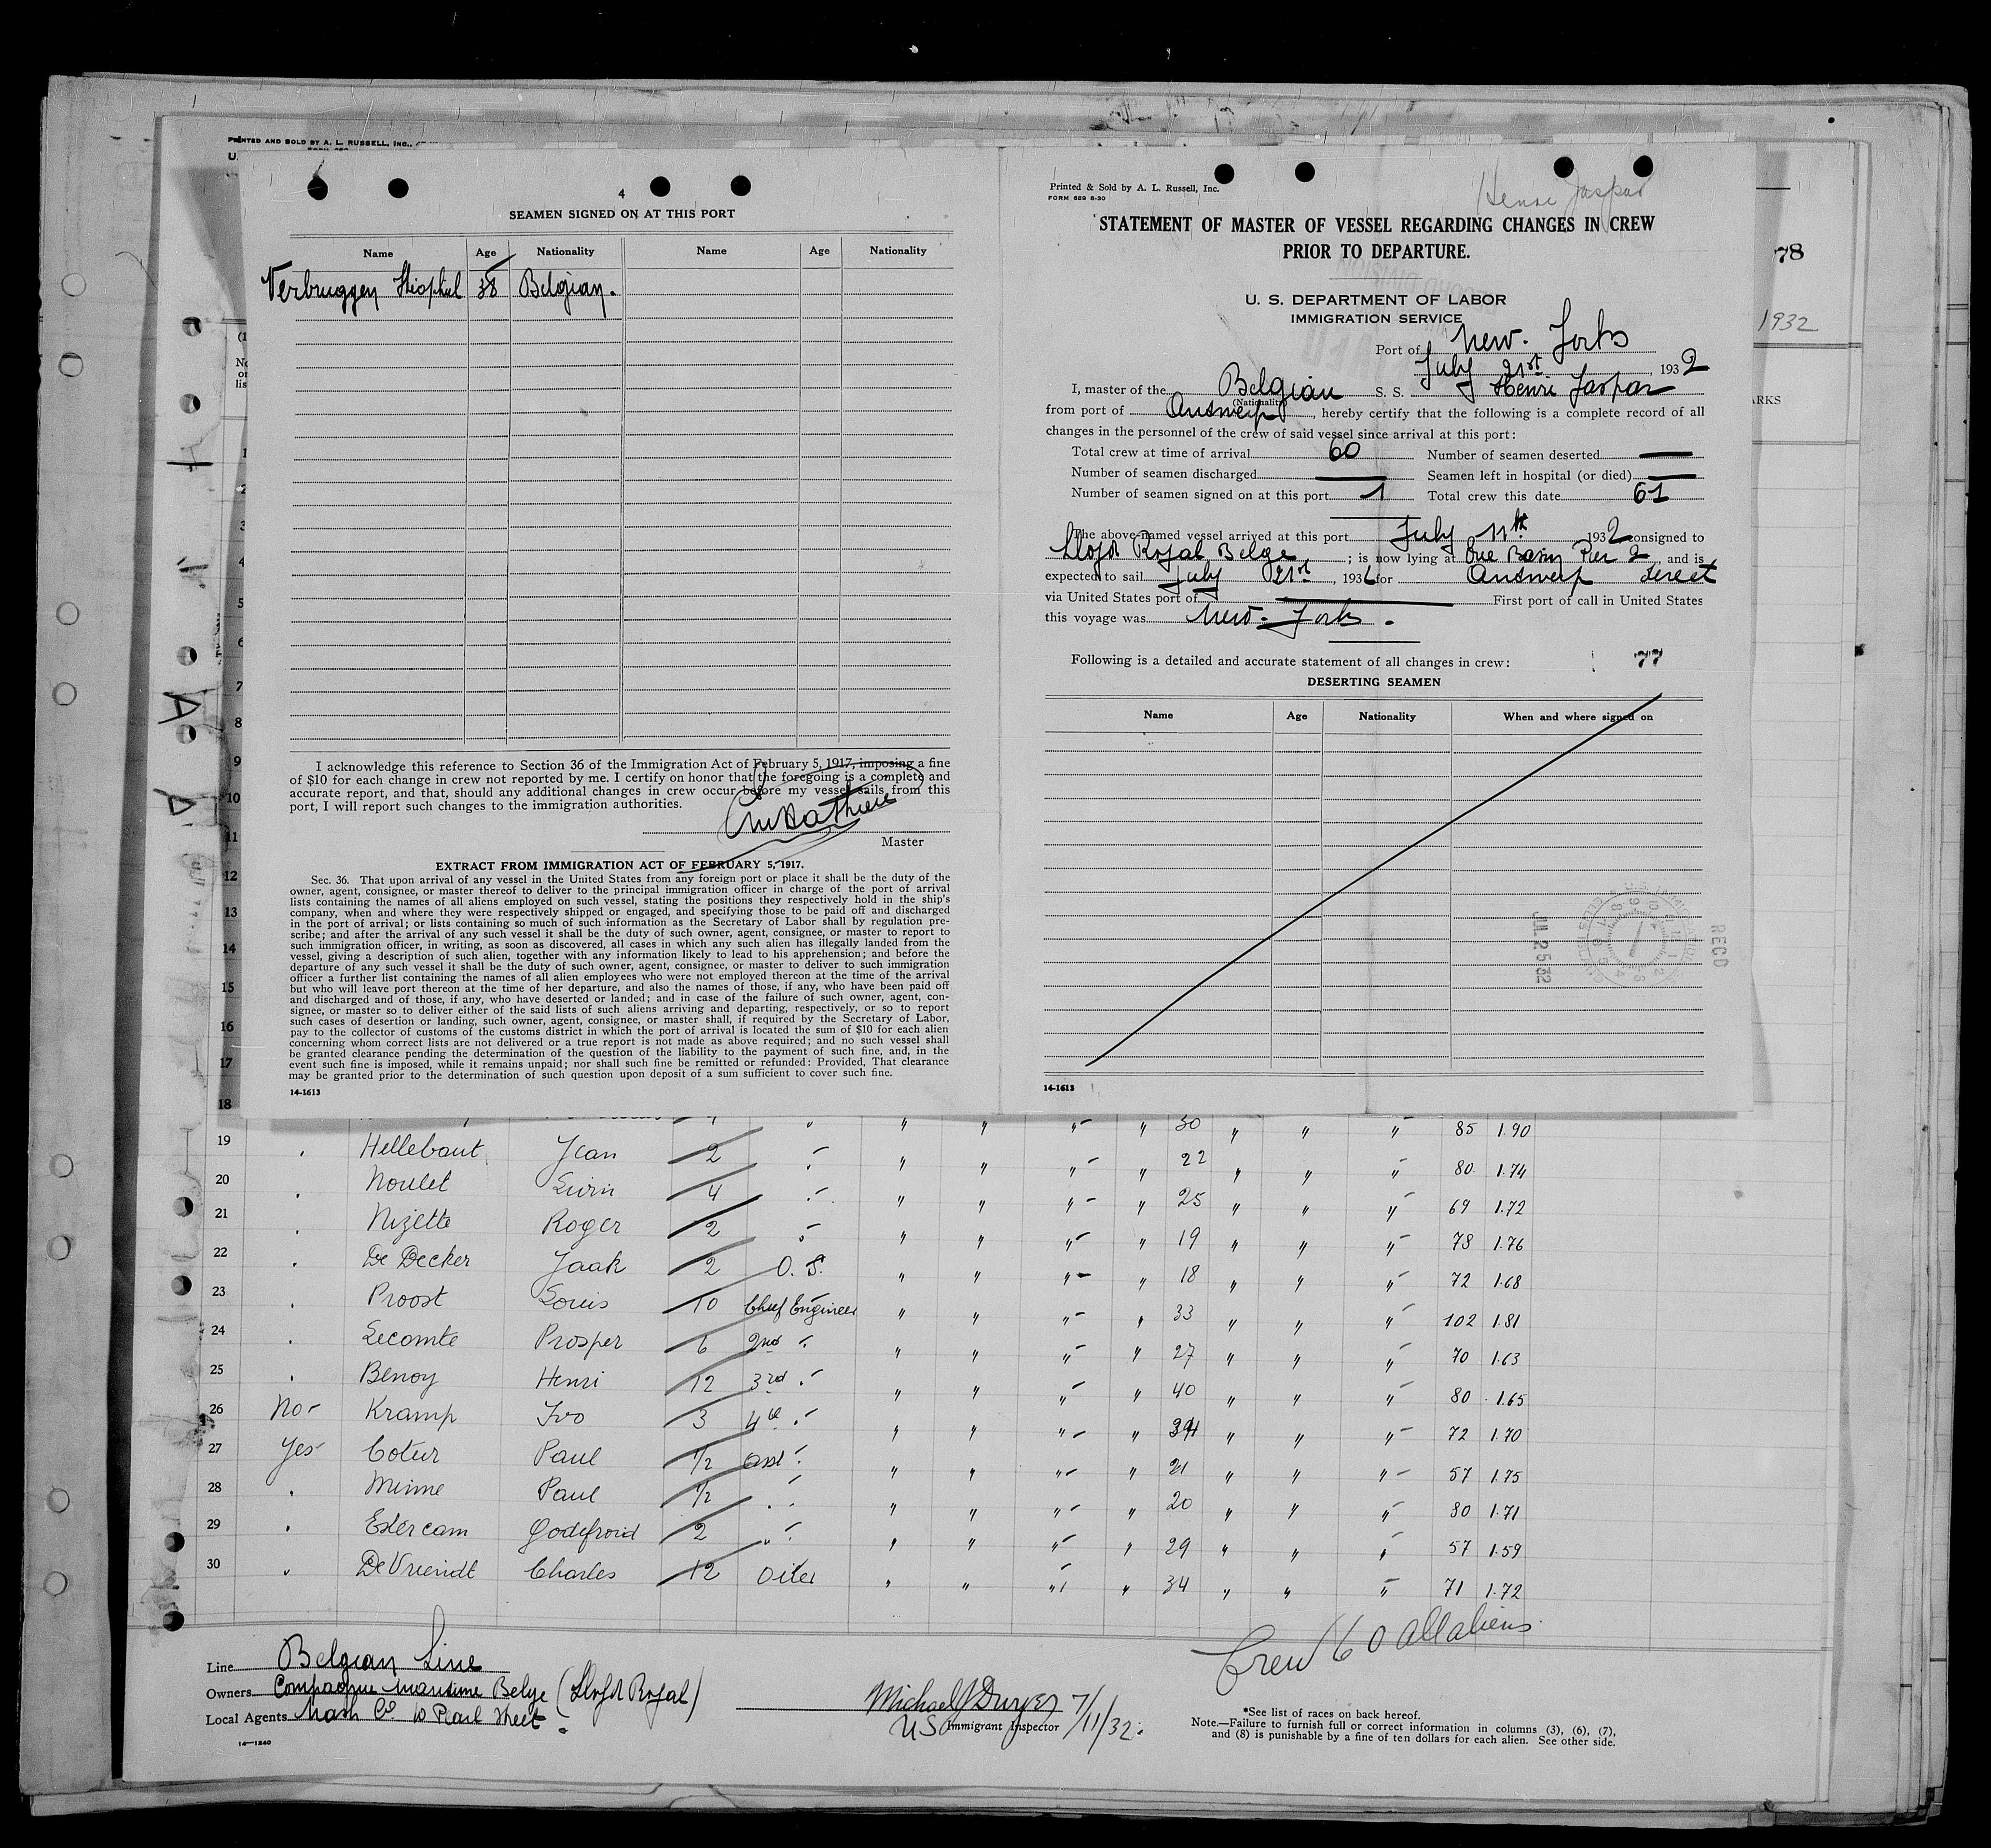 PRINTED AND SOLD BY A. L. RUSSELL, INC.,
4
SEAMEN SIGNED ON AT THIS PORT
Name Age Nationality Name Age Nationality
Verbruggen 38 Belgian.
I acknowledge this reference to Section 36 of the Immigration Act of February 5, 1917, imposing a fine
of $10 for each change in crew not reported by me. I certify on honor that the foregoing is a complete and
accurate report, and that, should any additional changes in crew occur before my vessel sails from this
port, I will report such changes to the immigration authorities.
Master
EXTRACT FROM IMMIGRATION ACT OF FEBRUARY 5, 1917.
Sec. 36. That upon arrival of any vessel in the United States from any foreign port or place it shall be the duty of the
owner, agent, consignee, or master thereof to deliver to the principal immigration officer in charge of the port of arrival
lists containing the names of all aliens employed on such vessel, stating the positions they respectively hold in the ship's
company, when and where they were respectively shipped or engaged, and specifying those to be paid off and discharged
in the port of arrival; or lists containing so much of such information as the Secretary of Labor shall by regulation pre-
scribe; and after the arrival of any such vessel it shall be the duty of such owner, agent, consignee, or master to report to
such immigration officer, in writing, as soon as discovered, all cases in which any such alien has illegally landed from the
vessel, giving a description of such alien, together with any information likely to lead to his apprehension; and before the
departure of any such vessel it shall be the duty of such owner, agent, consignee, or master to deliver to such immigration
officer a further list containing the names of all alien employees who were not employed thereon at the time of the arrival
but who will leave port thereon at the time of her departure, and also the names of those, if any, who have been paid off
and discharged and of those, if any, who have deserted or landed; and in case of the failure of such owner, agent, con-
signee, or master so to deliver either of the said lists of such aliens arriving and departing, respectively, or so to report
such cases of desertion or landing, such owner, agent, consignee, or master shall, if required by the Secretary of Labor,
pay to the collector of customs of the customs district in which the port of arrival is located the sum of $10 for each alien
concerning whom correct lists are not delivered or a true report is not made as above required; and no such vessel shall
be granted clearance pending the determination of the question of the liability to the payment of such fine, and, in the
event such fine is imposed, while it remains unpaid; nor shall such fine be remitted or refunded: Provided, That clearance
may be granted prior to the determination of such question upon deposit of a sum sufficient to cover such fine.
14-1613
Printed & Sold by A. L. Russell, Inc.
FORM 689 8-30
Henri Jaspar
STATEMENT OF MASTER OF VESSEL REGARDING CHANGES IN CREW
PRIOR TO DEPARTURE.
U. S. DEPARTMENT OF LABOR
IMMIGRATION SERVICE
Port of New. York
July 21st, 1932
I, master of the Belgian S. S. Henri Jaspar
(Nationality)
from port of Antwerp, hereby certify that the following is a complete record of all
changes in the personnel of the crew of said vessel since arrival at this port:
Total crew at time of arrival 60 Number of seamen deserted —
Number of seamen discharged — Seamen left in hospital (or died) —
Number of seamen signed on at this port 1 Total crew this date 61
The above-named vessel arrived at this port July 11th 1932 consigned to
Lloyd Royal Belge; is now lying at Basin Pier 2, and is
expected to sail July 21st, 193 for Antwerp direct
via United States port of — First port of call in United States
this voyage was New-York.
Following is a detailed and accurate statement of all changes in crew:
77
DESERTING SEAMEN
Name Age Nationality When and where signed on
JUL 25 32
RECD
14-1613
78
1932
RKS
1
2
3
4
5
6
7
8
9
10
11
12
13
14
15
16
17
18 " " " " 30 " " " 85 1.90
19 Hellebaut Jean 2 " " " " " 22 " " " 80 1.74
20 Noulet 4 " " " " " 25 " " " 69 1.72
21 Nizette Roger 2 " " " " " 19 " " " 78 1.76
22 De Decker Jaak 2 O. S. " " " " 18 " " " 72 1.68
23 Proost Louis 10 Chief Engineer " " " " 33 " " " 102 1.81
24 Lecomte Prosper 6 2nd " " " " " 27 " " " 70 1.63
25 Benoy Henri 12 3rd " " " " " 40 " " " 80 1.65
26 No Kramp Ivo 3 4th " " " " " 34 " " " 72 1.70
27 Yes Cotur Paul 1/2 asst " " " " " 21 " " " 57 1.75
28 " Minne Paul 1/2 " " " " " " 20 " " " 80 1.71
29 " Estercam Godefroid 2 " " " " " " 29 " " " 57 1.59
30 " De Vriendt Charles 12 Oiler " " " " 34 " " " 71 1.72
Crew 60 all aliens
Line Belgian Line
Owners Compagnie Maritime Belge (Lloyd Royal)
Local Agents Nash Co 10 Pearl Street.
14—1240
Michael J Dwyer 7/11/32.
US Immigrant Inspector
*See list of races on back hereof.
Note.—Failure to furnish full or correct information in columns (3), (6), (7),
and (8) is punishable by a fine of ten dollars for each alien. See other side.